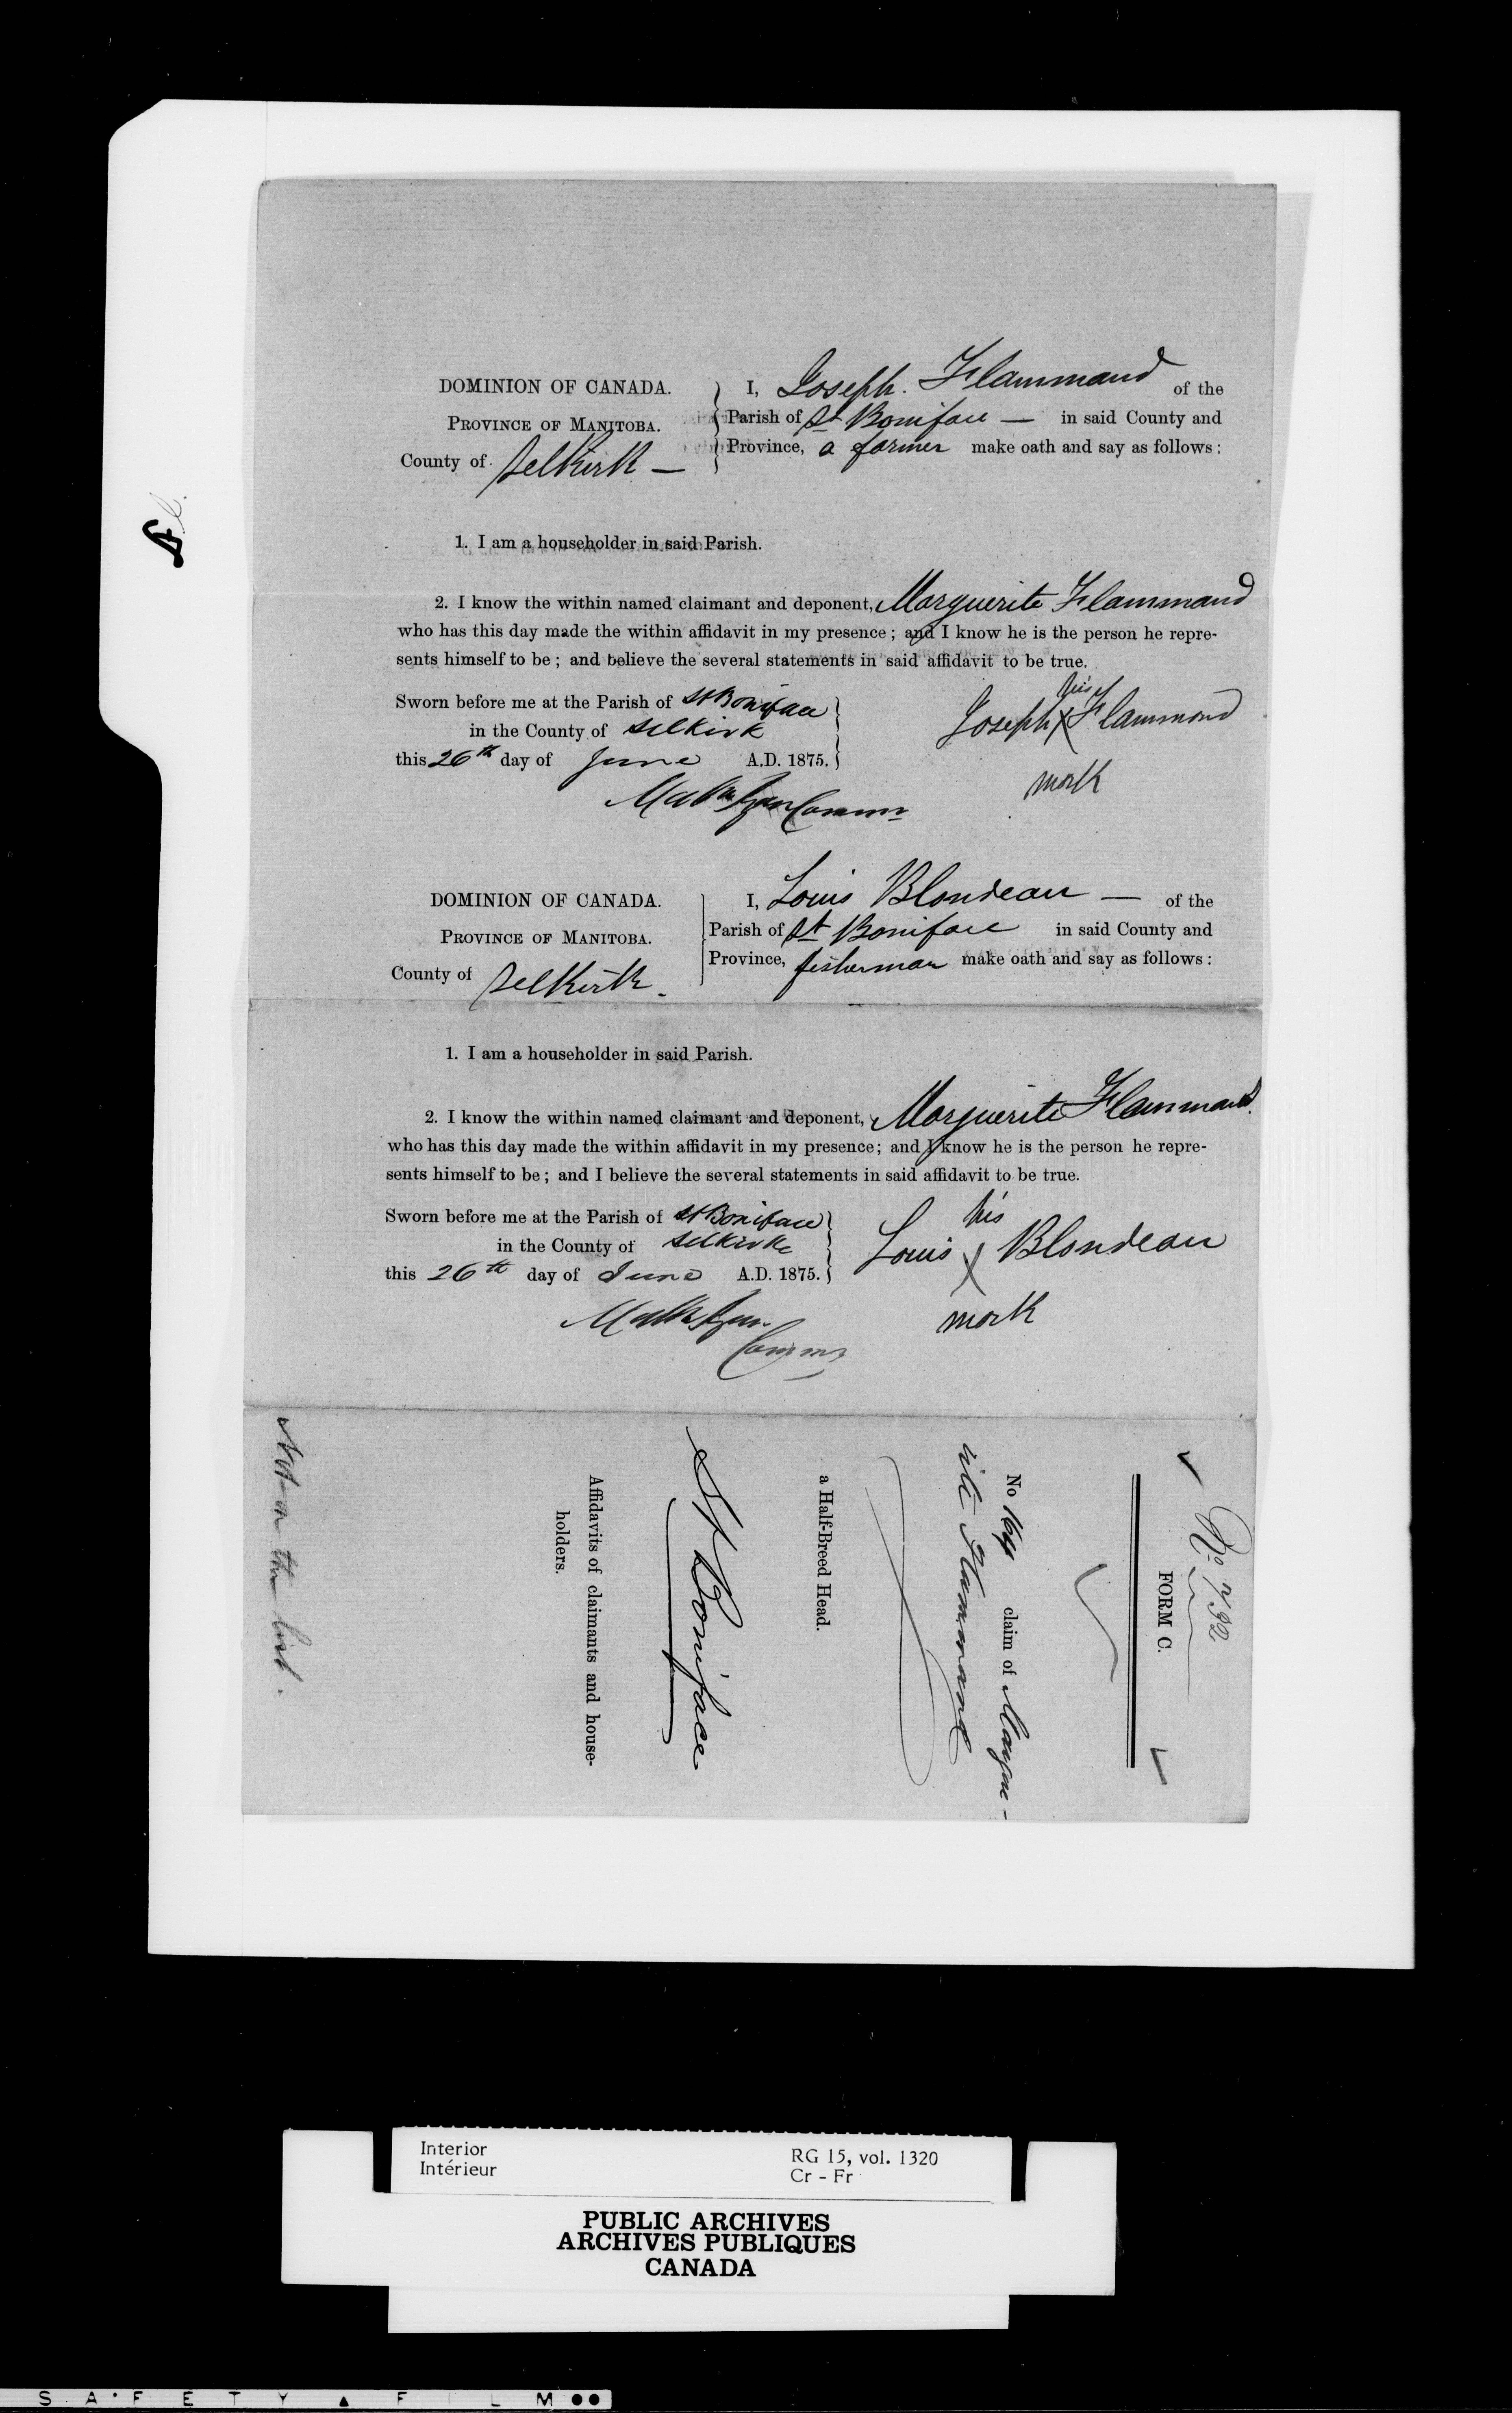 DOMINION OF CANADA.
PROVINCE OF MANITOBA.
County of Selkirk —
I, Joseph. Flammand of the
Parish of St Boniface — in said County and
Province, a farmer make oath and say as follows:
1. I am a householder in said Parish.
2. I know the within named claimant and deponent, Marguerite Flammand
who has this day made the within affidavit in my presence; and I know he is the person he repre-
sents himself to be; and believe the several statements in said affidavit to be true.
Sworn before me at the Parish of St Boniface
in the County of Selkirk
this 26th day of June A.D. 1875.
his
Joseph X Flammond
mark
DOMINION OF CANADA.
PROVINCE OF MANITOBA.
County of Selkirk.
I, Louis Blondeau — of the
Parish of St Boniface in said County and
Province, fisherman make oath and say as follows:
1. I am a householder in said Parish.
2. I know the within named claimant and deponent, Marguerite Flammand
who has this day made the within affidavit in my presence; and I know he is the person he repre-
sents himself to be; and I believe the several statements in said affidavit to be true.
Sworn before me at the Parish of St Boniface
in the County of Selkirk
this 26th day of June A.D. 1875.
his
Louis X Blondeau
mark
No 732
FORM C.
No 164 claim of Margue-
rite Flammand
a Half-Breed Head.
St Boniface
Affidavits of claimants and house-
holders.
Not on the list.
Interior
Intérieur
RG 15, vol. 1320
Cr - Fr
PUBLIC ARCHIVES
ARCHIVES PUBLIQUES
CANADA
SAFETY FILM